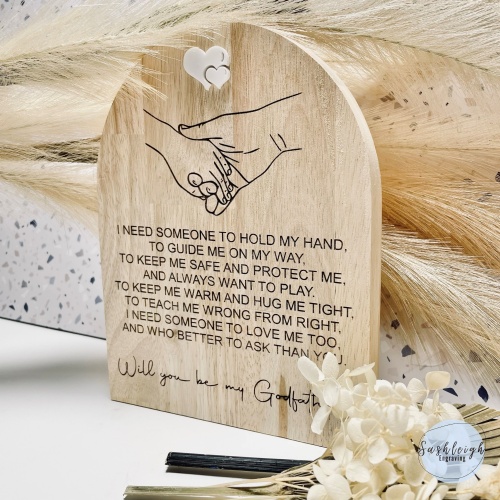 I NEED SOMEONE TO HOLD MY HAND,
TO GUIDE ME ON MY WAY,
TO KEEP ME SAFE AND PROTECT ME,
AND ALWAYS WANT TO PLAY.
TO KEEP ME WARM AND HUG ME TIGHT,
TO TEACH ME WRONG FROM RIGHT,
I NEED SOMEONE TO LOVE ME TOO,
AND WHO BETTER TO ASK THAN YOU,
Will you be my Godfath
Sashleigh
Engraving